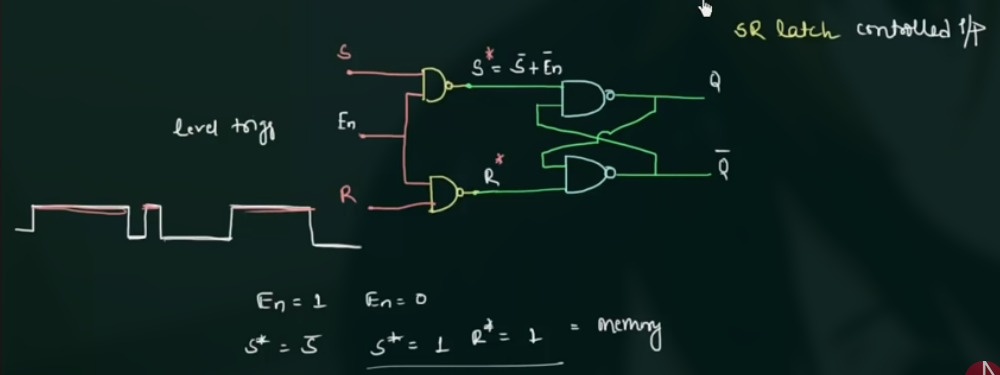 SR latch controlled I/P
S
S* = S̄ + Ēn
Q
En
level trigg
R*
Q̄
R
En = 1 En = 0
S* = S̄ S* = 1 R* = 1 = memory